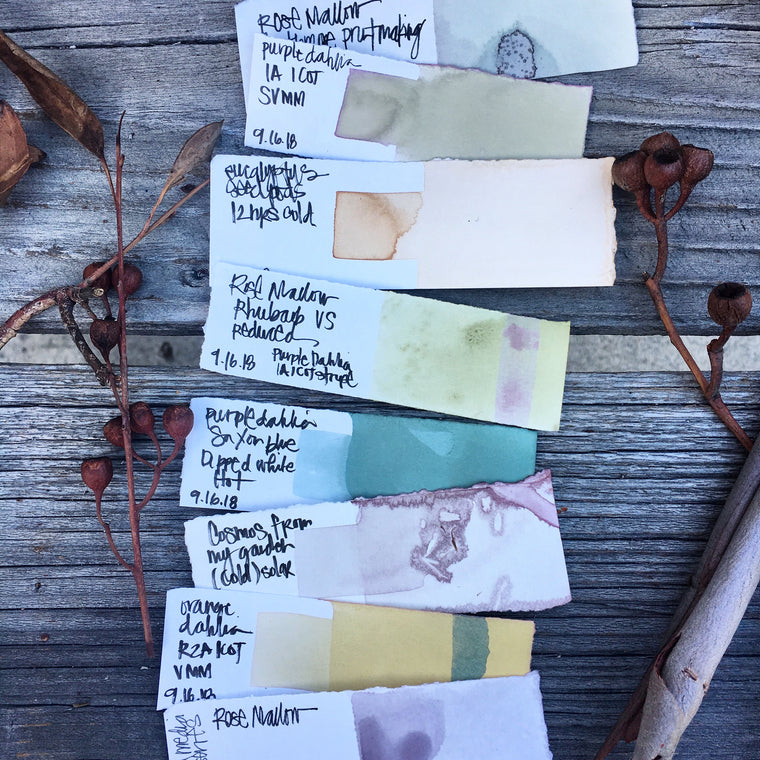 Rose Mallow
printmaking
purple dahlia
1A 1COT
SVMM
9.16.18
eucalyptus
Seedpods
12 hrs cold
Rose Mallow
Rhubarb VS
Reduced
9.16.18
Purple Dahlia
1A 1COT stripe
purple dahlia
Saxon blue
Dipped white
Hot
9.16.18
Cosmos from
my garden
(cold) solar
orange
dahlia
R2A 1COT
VMM
9.16.18
Rose Mallow
media